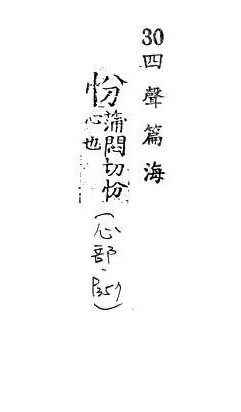 30四聲篇海
㤋蒲悶切㤋
心也
(心部·P357)